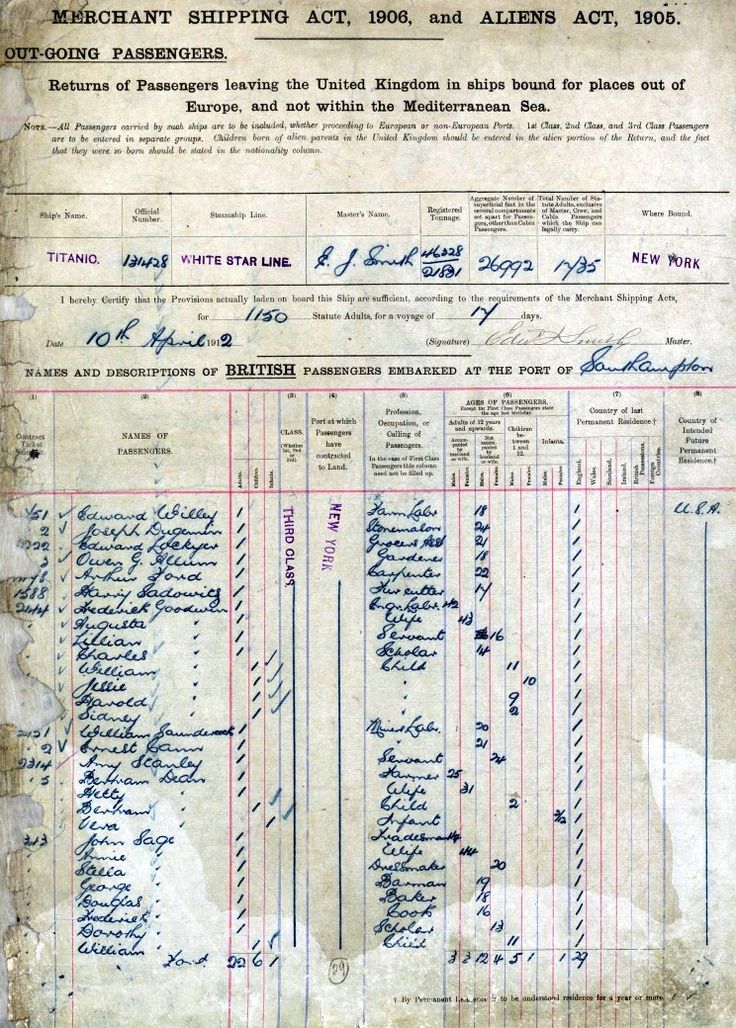 MERCHANT SHIPPING ACT, 1906, and ALIENS ACT, 1905.
OUT-GOING PASSENGERS.
Returns of Passengers leaving the United Kingdom in ships bound for places out of
Europe, and not within the Mediterranean Sea.
NOTE.—All Passengers carried by such ships are to be included, whether proceeding to European or non-European Ports. 1st Class, 2nd Class, and 3rd Class Passengers
are to be entered in separate groups. Children born of alien parents in the United Kingdom should be entered in the alien portion of the Return, and the fact
that they were so born should be stated in the nationality column.
Ship's Name. Official Number. Steamship Line. Master's Name. Registered Tonnage. Aggregate Number of superficial feet in the several compartments set apart for Passengers, other than Cabin Passengers. Total Number of Statute Adults, exclusive of Master, Crew, and Cabin Passengers which the Ship can legally carry. Where Bound.
TITANIC. 131428 WHITE STAR LINE. E. J. Smith 46328/21831 26992 1735 NEW YORK
I hereby Certify that the Provisions actually laden on board this Ship are sufficient, according to the requirements of the Merchant Shipping Acts,
for 1150 Statute Adults, for a voyage of 17 days.
Date 10th April 1912 (Signature) Edwd J Smith Master.
NAMES AND DESCRIPTIONS OF BRITISH PASSENGERS EMBARKED AT THE PORT OF Southampton
(1) (2) (3) (4) (5) (6) (7) (8)
Contract Ticket Number. NAMES OF PASSENGERS. CLASS. (Whether 1st, 2nd or 3rd). Port at which Passengers have contracted to Land. Profession, Occupation, or Calling of Passengers. In the case of First Class Passengers this column need not be filled up. AGES OF PASSENGERS. Except for First Class Passengers state the age last birthday. Country of last Permanent Residence.† Country of Intended Future Permanent Residence.†
Adults of 12 years and upwards. Children between 1 and 12. Infants.
Accompanied by husband or wife. Not accompanied by husband or wife.
Adults. Children. Infants. Males. Females. Males. Females. Males. Females. Males. Females. England. Wales. Scotland. Ireland. British Possessions. Foreign Countries.
THIRD CLASS NEW YORK
Edward Willey 1 Farm Labr 18 1 U.S.A.
2 Joseph Dugemin 1 Stonemason 24 1
Edward Lockyer 1 Grocers Asst 21 1
3 Owen G. Allum 1 Gardener 18 1
Arthur Ford 1 Carpenter 22 1
1588 Harry Sadowitz 1 Fur cutter 17 1
2144 Frederick Goodwin 1 Engr. Labr. 42 1
Augusta " 1 Wife 43 1
Lillian " 1 Servant 16 1
Charles " 1 Scholar 14 1
William " 1 Child 11 1
Jessie " 1 " 10 1
Harold " 1 " 9 1
Sidney " 1 " 2 1
2151 William Saundercock 1 Miners Labr. 20 1
2 Ernest Cann 1 " 21 1
2314 Amy Stanley 1 Servant 24 1
5 Bertram Dean 1 Farmer 25 1
Hetty " 1 Wife 31 1
Bertram " 1 Child 2 1
Vera " 1 Infant 1
343 John Sage 1 Tradesman 44 1
Annie " 1 Wife 44 1
Stella " 1 Dressmaker 20 1
George " 1 Barman 19 1
Douglas " 1 Baker 18 1
Frederick " 1 Cook 16 1
Dorothy " 1 Scholar 13 1
William " 1 Child 11 1
Ford. 22 6 1 29 3 3 12 4 5 1 1 29
† By Permanent Residence is to be understood residence for a year or more.